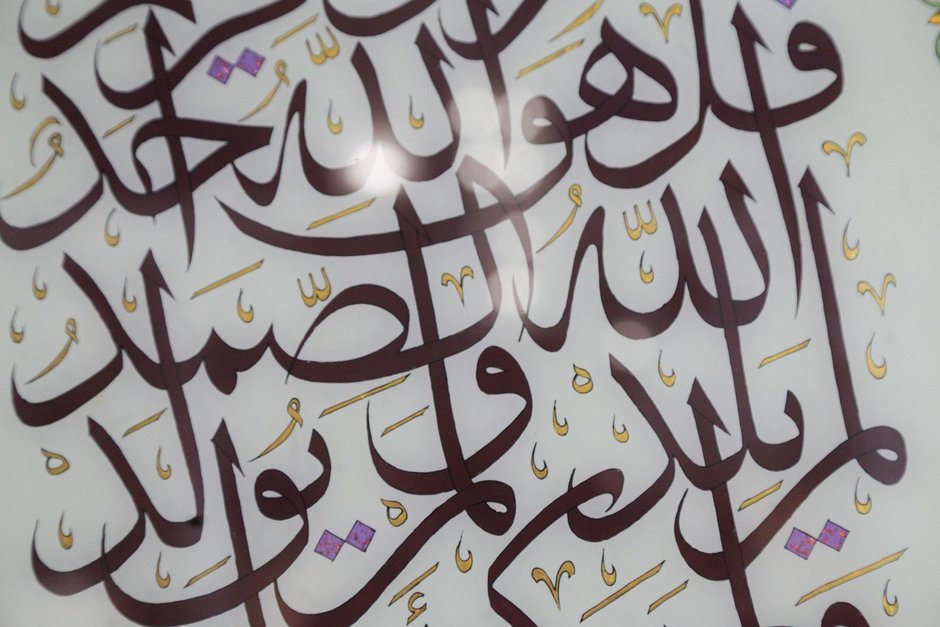 قُلْ هُوَ اللَّهُ أَحَدٌ
اللَّهُ الصَّمَدُ
لَمْ يَلِدْ وَلَمْ يُولَدْ